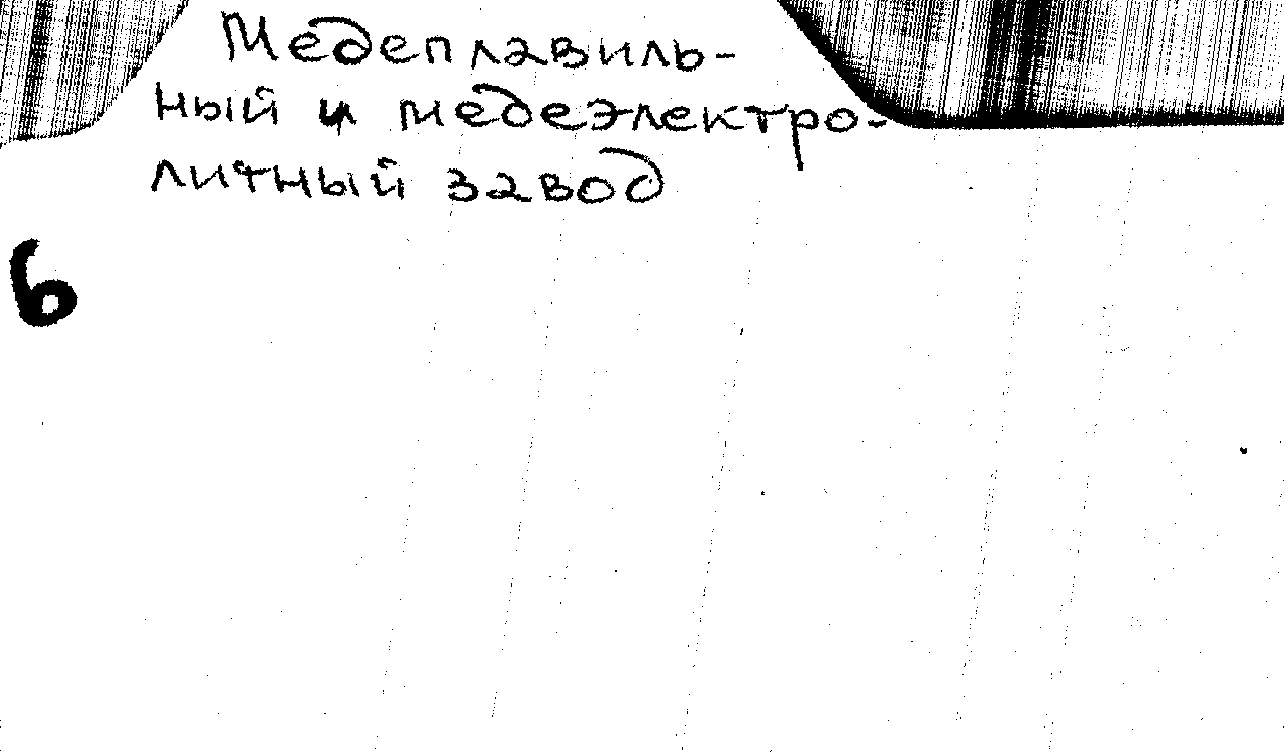 Медеплавиль-
ный и медеэлектро-
литный завод
6